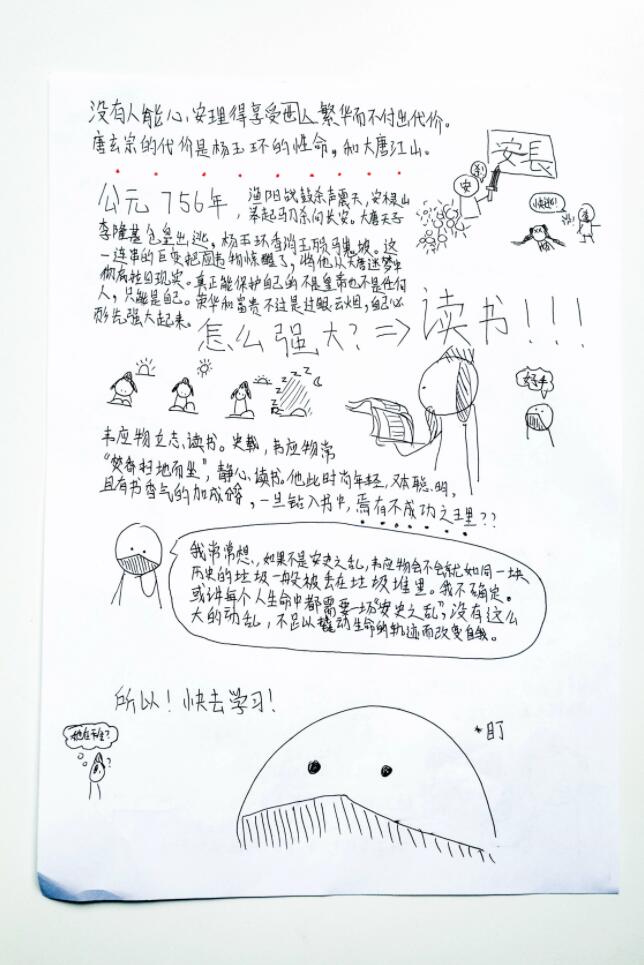 没有人能心安理得享受世人繁华而不付出代价。
唐玄宗的代价是杨玉环的性命,和大唐江山。
安长
杀!
安
快逃!
公元756年,
渔阳战鼓杀声震天,安禄山
举起马刀杀向长安。大唐天子
李隆基仓皇出逃,杨玉环香消玉殒马嵬坡。这
一连串的巨变把应物惊醒了,将他从大唐迷梦中
彻底拉回现实。真正能保护自己的不是皇帝也不是任何
人,只能是自己。荣华和富贵不过是过眼云烟,自己必
须先强大起来。
怎么强大?⇒读书!!!
z z z z z
好手
韦应物立志读书。史载,韦应物常
“焚香扫地而坐”,静心读书。他此时尚年轻,又本聪明,
且有书香气的加成修,一旦钻入书中,焉有不成功之理??
我常常想,如果不是安史之乱,韦应物会不会就如同一块
历史的垃圾一般被丢在垃圾堆里。我不确定。
或许每个人生命中都需要一场“安史之乱”,没有这么
大的动乱,不足以撬动生命的轨迹而改变自我。
所以!快去学习!
*盯
他在干么?
?